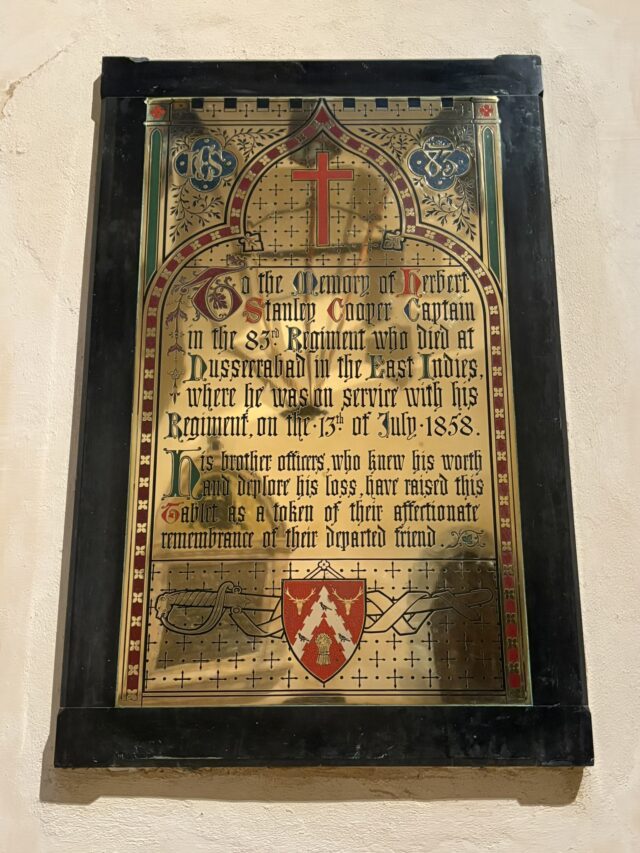 HCS
83
To the Memory of Herbert
Stanley Cooper Captain
in the 83rd Regiment who died at
Nusseerabad in the East Indies,
where he was on service with his
Regiment, on the 13th of July 1858.
His brother officers, who knew his worth
and deplore his loss, have raised this
Tablet as a token of their affectionate
remembrance of their departed friend.